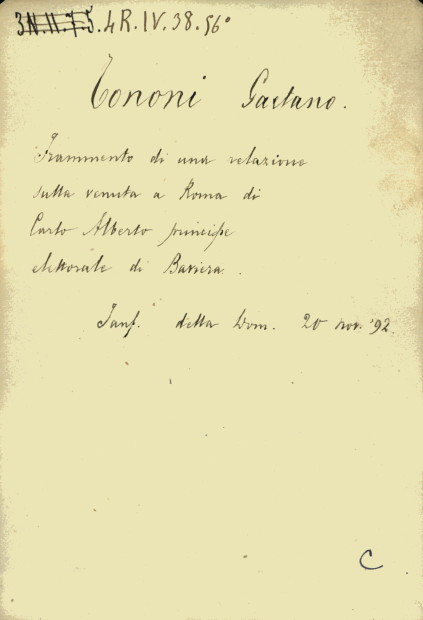 3N.11.7.5. 4R.IV.38.56°
Tononi Gaetano.
Frammento di una relazione
sulla venuta a Roma di
Carlo Alberto principe
elettorale di Baviera.
Fanf. della Dom. 20 nov. '92.
C